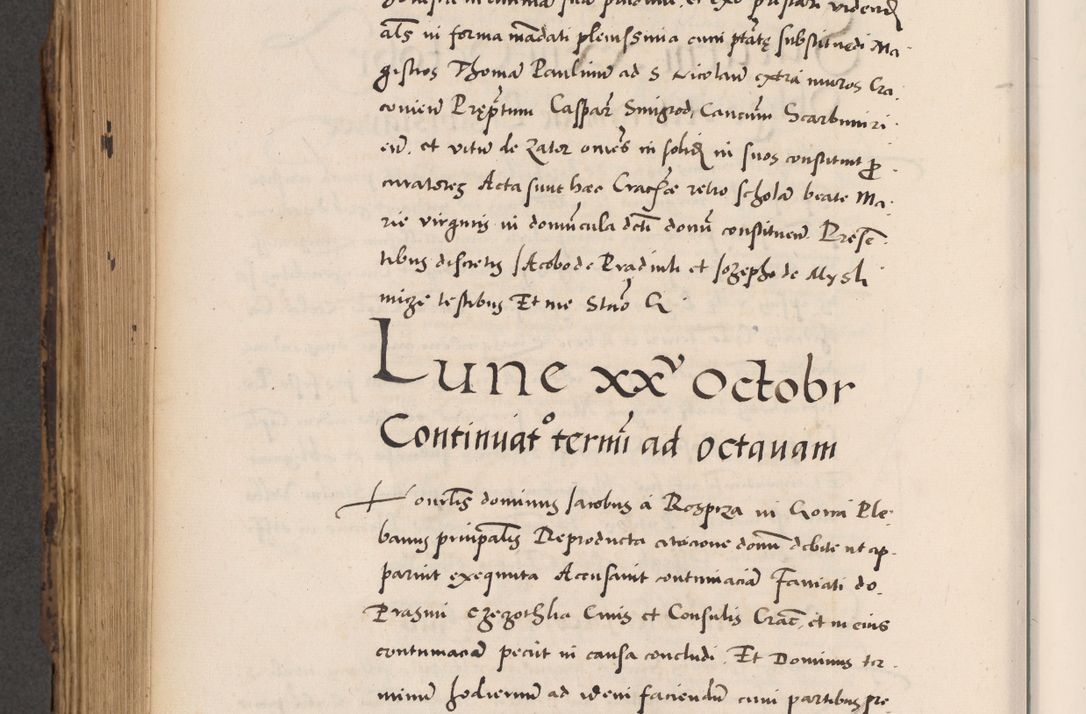 als in forma mandati plenissima cum ptate substituedi Ma-
gistros Thomā Paulinū ad S Nicolaū extra muros Cra-
coviēn Preptum Caspar Smigrod, Cancium Scarbimiri
eñ. et vitū de zator omēs in solid in suos constituit p
curatores Acta sunt hæc Cracoē retro scholā beate Ma-
rie virginis in domūcula dcti domī constituen. Presē-
tibus discretis Jacobo de Pradinli et Jozepho de Mysli
mize testibus Et me Stāo G
Lune xxv Octobr
Continuat° termī ad octauam
Honorlis dominus Jacobus a Rosprza in Gorra Ple-
banus prinpalis Reproducta citacione domī debite ut ap-
paruit exequuta Accusauit contumaciā Famati do-
Erasmi Czeczothka Ciuis et Consulis Crac, et in eius
contumaciā peciit in causa concludi. Et Dominus ter-
minū hodiernū ad idem faciendū cum partibus pre